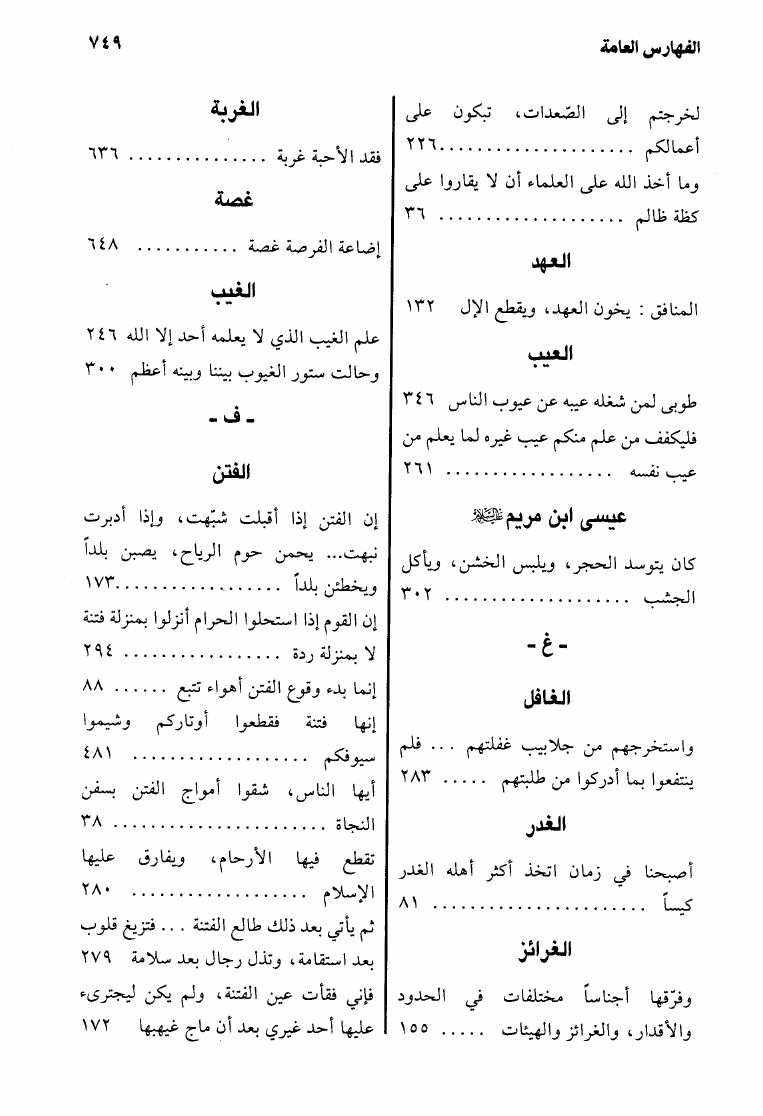 الفهارس العامة
٧٤٩
لخرجتم إلى الصّعدات، تبكون على
أعمالكم .....................٢٢٦
وما أخذ الله على العلماء أن لا يقاروا على
كظة ظالم .................... ٣٦
العهد
المنافق : يخون العهد، ويقطع الإل ١٣٢
العيب
طوبى لمن شغله عيبه عن عيوب الناس ٣٤٦
فليكفف من علم منكم عيب غيره لما يعلم من
عيب نفسه .................. ٢٦١
عيسى ابن مريم عليه السلام
كان يتوسد الحجر، ويلبس الخشن، ويأكل
الجشب .................... ٣٠٢
- غ -
الغافل
واستخرجهم من جلابيب غفلتهم ... فلم
ينتفعوا بما أدركوا من طلبتهم ..... ٢٨٣
الغدر
أصبحنا في زمان اتخذ أكثر أهله الغدر
كيساً ....................... ٨١
الغرائز
وفرّقها أجناساً مختلفات في الحدود
والأقدار، والغرائز والهيئات ..... ١٥٥
الغربة
فقد الأحبة غربة ............... ٦٣٦
غصة
إضاعة الفرصة غصة ........... ٦٤٨
الغيب
علم الغيب الذي لا يعلمه أحد إلا الله ٢٤٦
وحالت ستور الغيوب بيننا وبينه أعظم ٣٠٠
- ف -
الفتن
إن الفتن إذا أقبلت شبّهت، وإذا أدبرت
نبهت... يحمن حوم الرياح، يصبن بلداً
ويخطئن بلداً ..................١٧٣
إن القوم إذا استحلوا الحرام أنزلوا بمنزلة فتنة
لا بمنزلة ردة ................. ٢٩٤
إنما بدء وقوع الفتن أهواء تتبع ...... ٨٨
إنها فتنة فقطعوا أوتاركم وشيموا
سيوفكم ................... ٤٨١
أيها الناس، شقوا أمواج الفتن بسفن
النجاة ....................... ٣٨
تقطع فيها الأرحام، ويفارق عليها
الإسلام ................... ٢٨٠
ثم يأتي بعد ذلك طالع الفتنة ... فتزيغ قلوب
بعد استقامة، وتذل رجال بعد سلامة ٢٧٩
فإني فقأت عين الفتنة، ولم يكن ليجترىء
عليها أحد غيري بعد أن ماج غيهبها ١٧٢